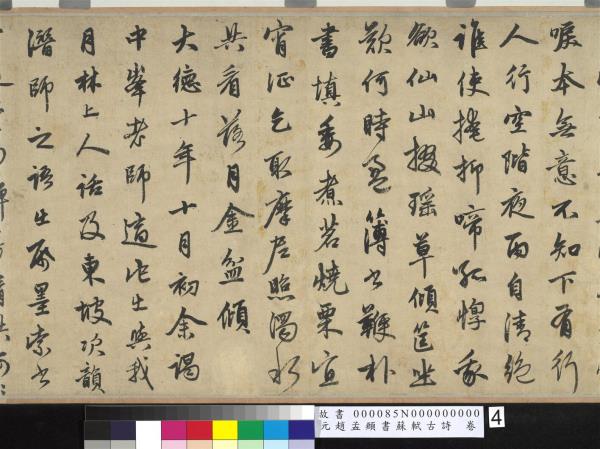 唳本無意不知下有行
人行空階夜雨自清絕
誰使掩抑啼孤惸我
欲仙山掇瑤草傾筐坐
歎何時盈簿書鞭朴
晝填委煮茗燒栗宜
宵征乞取摩尼照濁水
共看落月金盆傾
大德十年十月初余謁
中峯老師與我
月林上人話及東坡次韻
潛師之語出墨索書
故書 000085N000000000
元趙孟頫書蘇軾古詩 卷
4